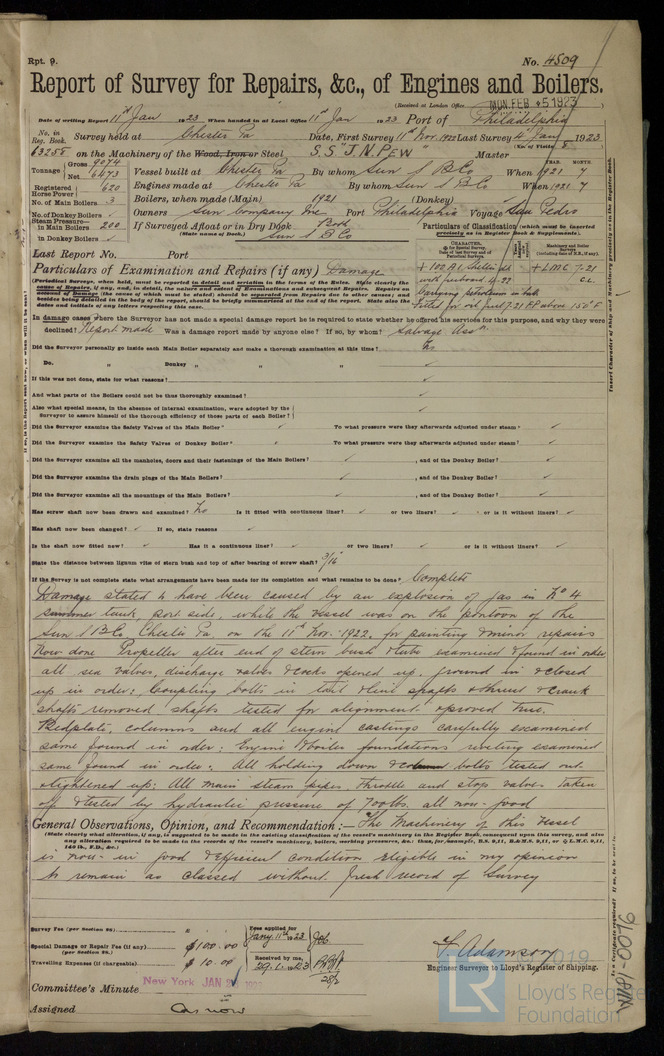 Rpt. 9.
No. 4509
Report of Survey for Repairs, &c., of Engines and Boilers.
(Received at London Office MON. FEB 5 1923)
Date of writing Report 11th Jan 1923 When handed in at Local Office 11th Jan 1923 Port of Philadelphia
No. in Reg. Book. Survey held at Chester Pa Date, First Survey 11th Nov. 1922 Last Survey 4th Jan 1923
(No. of Visits 8)
63258 on the Machinery of the Wood, Iron or Steel S.S "J. N. PEW" Master
Tonnage Gross 9074 Net 6473 Vessel built at Chester Pa By whom Sun S B Co When 1921 7
Registered Horse Power 620 Engines made at Chester Pa By whom Sun S B Co When 1921 7
No. of Main Boilers 3 Boilers, when made (Main) 1921 (Donkey)
No. of Donkey Boilers ✓ Owners Sun Company Inc. Port Philadelphia Voyage San Pedro
Steam Pressure in Main Boilers 200 If Surveyed Afloat or in Dry Dock Both
(State name of Dock.) Sun S B Co
in Donkey Boilers ✓
Particulars of Classification (which must be inserted precisely as in Register Book & Supplements).
Last Report No. Port
Particulars of Examination and Repairs (if any) Damage
+ 100 A1 Shelter dk
with freeboard
Carrying petroleum in bulk
Fitted for oil fuel 7.21 F.P. above 150°F.
+ LMC 7.21
C.L.
In damage cases where the Surveyor has not made a special damage report he is required to state whether he offered his services for this purpose, and why they were
declined? Report made Was a damage report made by anyone else? If so, by whom? Salvage Assn.
Did the Surveyor personally go inside each Main Boiler separately and make a thorough examination at this time? No
Do. " Donkey " " " ✓
If this was not done, state for what reasons? ✓
And what parts of the Boilers could not be thus thoroughly examined? ✓
Also what special means, in the absence of internal examination, were adopted by the Surveyor to assure himself of the thorough efficiency of those parts of each Boiler? ✓
Did the Surveyor examine the Safety Valves of the Main Boiler? ✓ To what pressure were they afterwards adjusted under steam? ✓
Did the Surveyor examine the Safety Valves of Donkey Boiler? ✓ To what pressure were they afterwards adjusted under steam? ✓
Did the Surveyor examine all the manholes, doors and their fastenings of the Main Boilers? ✓, and of the Donkey Boiler? ✓
Did the Surveyor examine the drain plugs of the Main Boilers? ✓, and of the Donkey Boiler? ✓
Did the Surveyor examine all the mountings of the Main Boilers? ✓, and of the Donkey Boiler? ✓
Has screw shaft now been drawn and examined? No Is it fitted with continuous liner? ✓ or two liners? ✓ or is it without liners? ✓
Has shaft now been changed? ✓ If so, state reasons ✓
Is the shaft now fitted new? ✓ Has it a continuous liner? ✓ or two liners? ✓ or is it without liners? ✓
State the distance between lignum vitæ of stern bush and top of after bearing of screw shaft? 3/16"
If the Survey is not complete state what arrangements have been made for its completion and what remains to be done? Complete
Damage stated to have been caused by an explosion of gas in No 4
summer tank, port side, while the vessel was on the pontoon of the
Sun S B Co. Chester Pa, on the 11th Nov. 1922. for painting & minor repairs
Now done Propeller after end of stern bush & tube examined & found in order
all sea valves, discharge valves & cocks opened up, ground in & closed
up in order: Coupling bolts in tail & line shafts & thrust & crank
shafts removed shafts tested for alignment & proved true.
Bedplate, columns and all engine castings carefully examined
same found in order: Engine & boiler foundations riveting examined
same found in order: All holding down & column bolts tested out
& tightened up: All main steam pipes throttle and stop valves taken
off & tested by hydraulic pressure of 700 lbs. all now good
General Observations, Opinion, and Recommendation :— The Machinery of this Vessel
(State clearly what alteration, if any, is suggested to be made in the existing classification of the vessel's machinery in the Register Book, consequent upon this survey, and also
any alteration required to be made in the records of the vessel's machinery, boilers, working pressures, &c.: thus, for example, B.S. 9,11, B.&M.S. 9,11, or L.M.C. 9,11,
140 lb., F.D., &c.)
is now in good & efficient condition eligible in my opinion
to remain as classed without fresh record of Survey
Survey Fee (per Section 29)
Special Damage or Repair Fee (if any) (per Section 29.) $ 100.00
Travelling Expenses (if chargeable) $ 10.00
Fees applied for Jany. 11th 1923
Received by me, 29.1.1923
F. Adamson
Engineer Surveyor to Lloyd's Register of Shipping.
Committee's Minute New York JAN
Assigned As now
W181-0096
LR
Lloyd's Register
Foundation